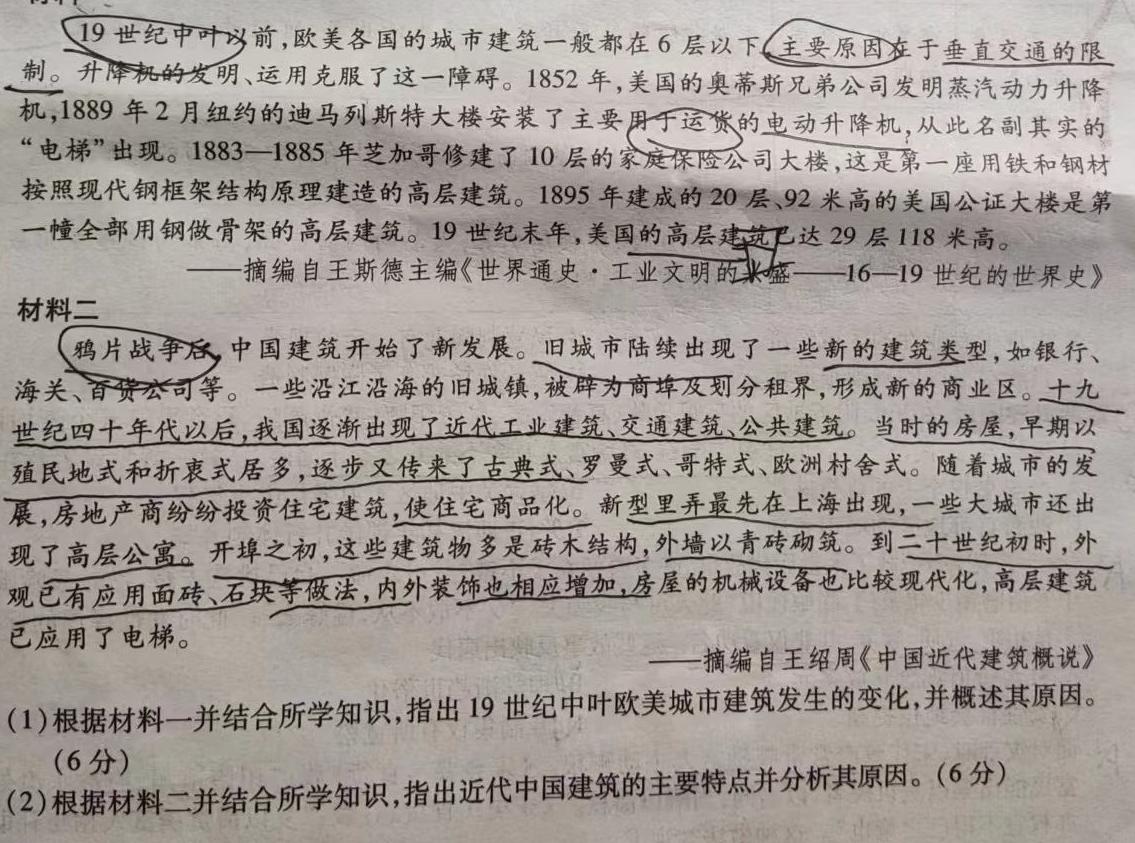 19 世纪中叶以前,欧美各国的城市建筑一般都在 6 层以下,主要原因在于垂直交通的限
制。升降机的发明、运用克服了这一障碍。1852 年,美国的奥蒂斯兄弟公司发明蒸汽动力升降
机,1889 年 2 月纽约的迪马列斯特大楼安装了主要用于运货的电动升降机,从此名副其实的
“电梯”出现。1883—1885 年芝加哥修建了 10 层的家庭保险公司大楼,这是第一座用铁和钢材
按照现代钢框架结构原理建造的高层建筑。1895 年建成的 20 层、92 米高的美国公证大楼是第
一幢全部用钢做骨架的高层建筑。19 世纪末年,美国的高层建筑已达 29 层 118 米高。
——摘编自王斯德主编《世界通史·工业文明的兴盛——16—19 世纪的世界史》
材料二
鸦片战争后,中国建筑开始了新发展。旧城市陆续出现了一些新的建筑类型,如银行、
海关、百货公司等。一些沿江沿海的旧城镇,被辟为商埠及划分租界,形成新的商业区。十九
世纪四十年代以后,我国逐渐出现了近代工业建筑、交通建筑、公共建筑。当时的房屋,早期以
殖民地式和折衷式居多,逐步又传来了古典式、罗曼式、哥特式、欧洲村舍式。随着城市的发
展,房地产商纷纷投资住宅建筑,使住宅商品化。新型里弄最先在上海出现,一些大城市还出
现了高层公寓。开埠之初,这些建筑物多是砖木结构,外墙以青砖砌筑。到二十世纪初时,外
观已有应用面砖、石块等做法,内外装饰也相应增加,房屋的机械设备也比较现代化,高层建筑
已应用了电梯。
——摘编自王绍周《中国近代建筑概说》
(1)根据材料一并结合所学知识,指出 19 世纪中叶欧美城市建筑发生的变化,并概述其原因。
(6 分)
(2)根据材料二并结合所学知识,指出近代中国建筑的主要特点并分析其原因。(6 分)